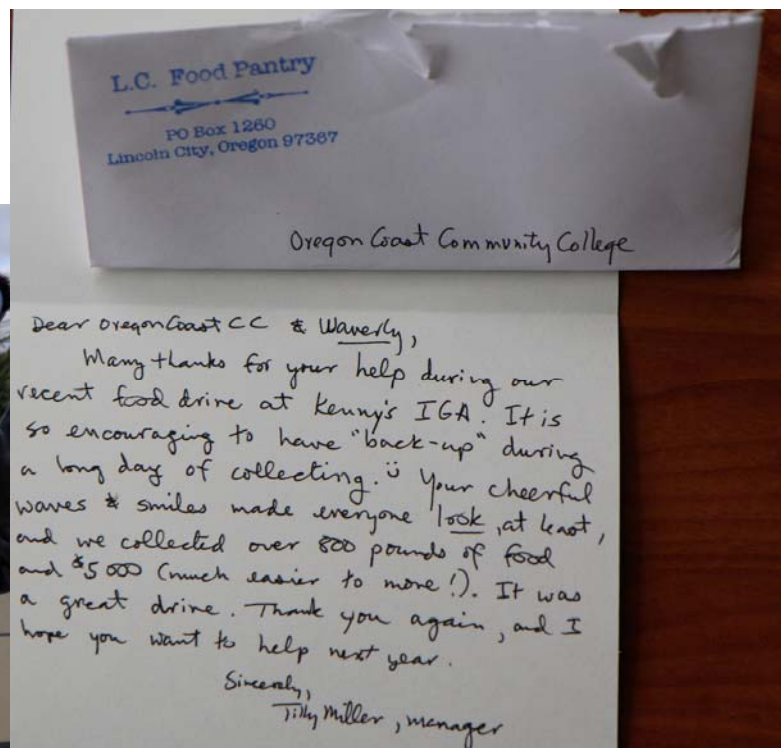 L.C. Food Pantry
PO Box 1260
Lincoln City, Oregon 97367
Oregon Coast Community College
Dear Oregon Coast CC & Waverly,
Many thanks for your help during our
recent food drive at Kenny's IGA. It is
so encouraging to have "back-up" during
a long day of collecting. Your cheerful
waves & smiles made everyone look, at least,
and we collected over 800 pounds of food
and $5000 (much easier to move!). It was
a great drive. Thank you again, and I
hope you want to help next year.
Sincerely,
Tilly Miller, manager